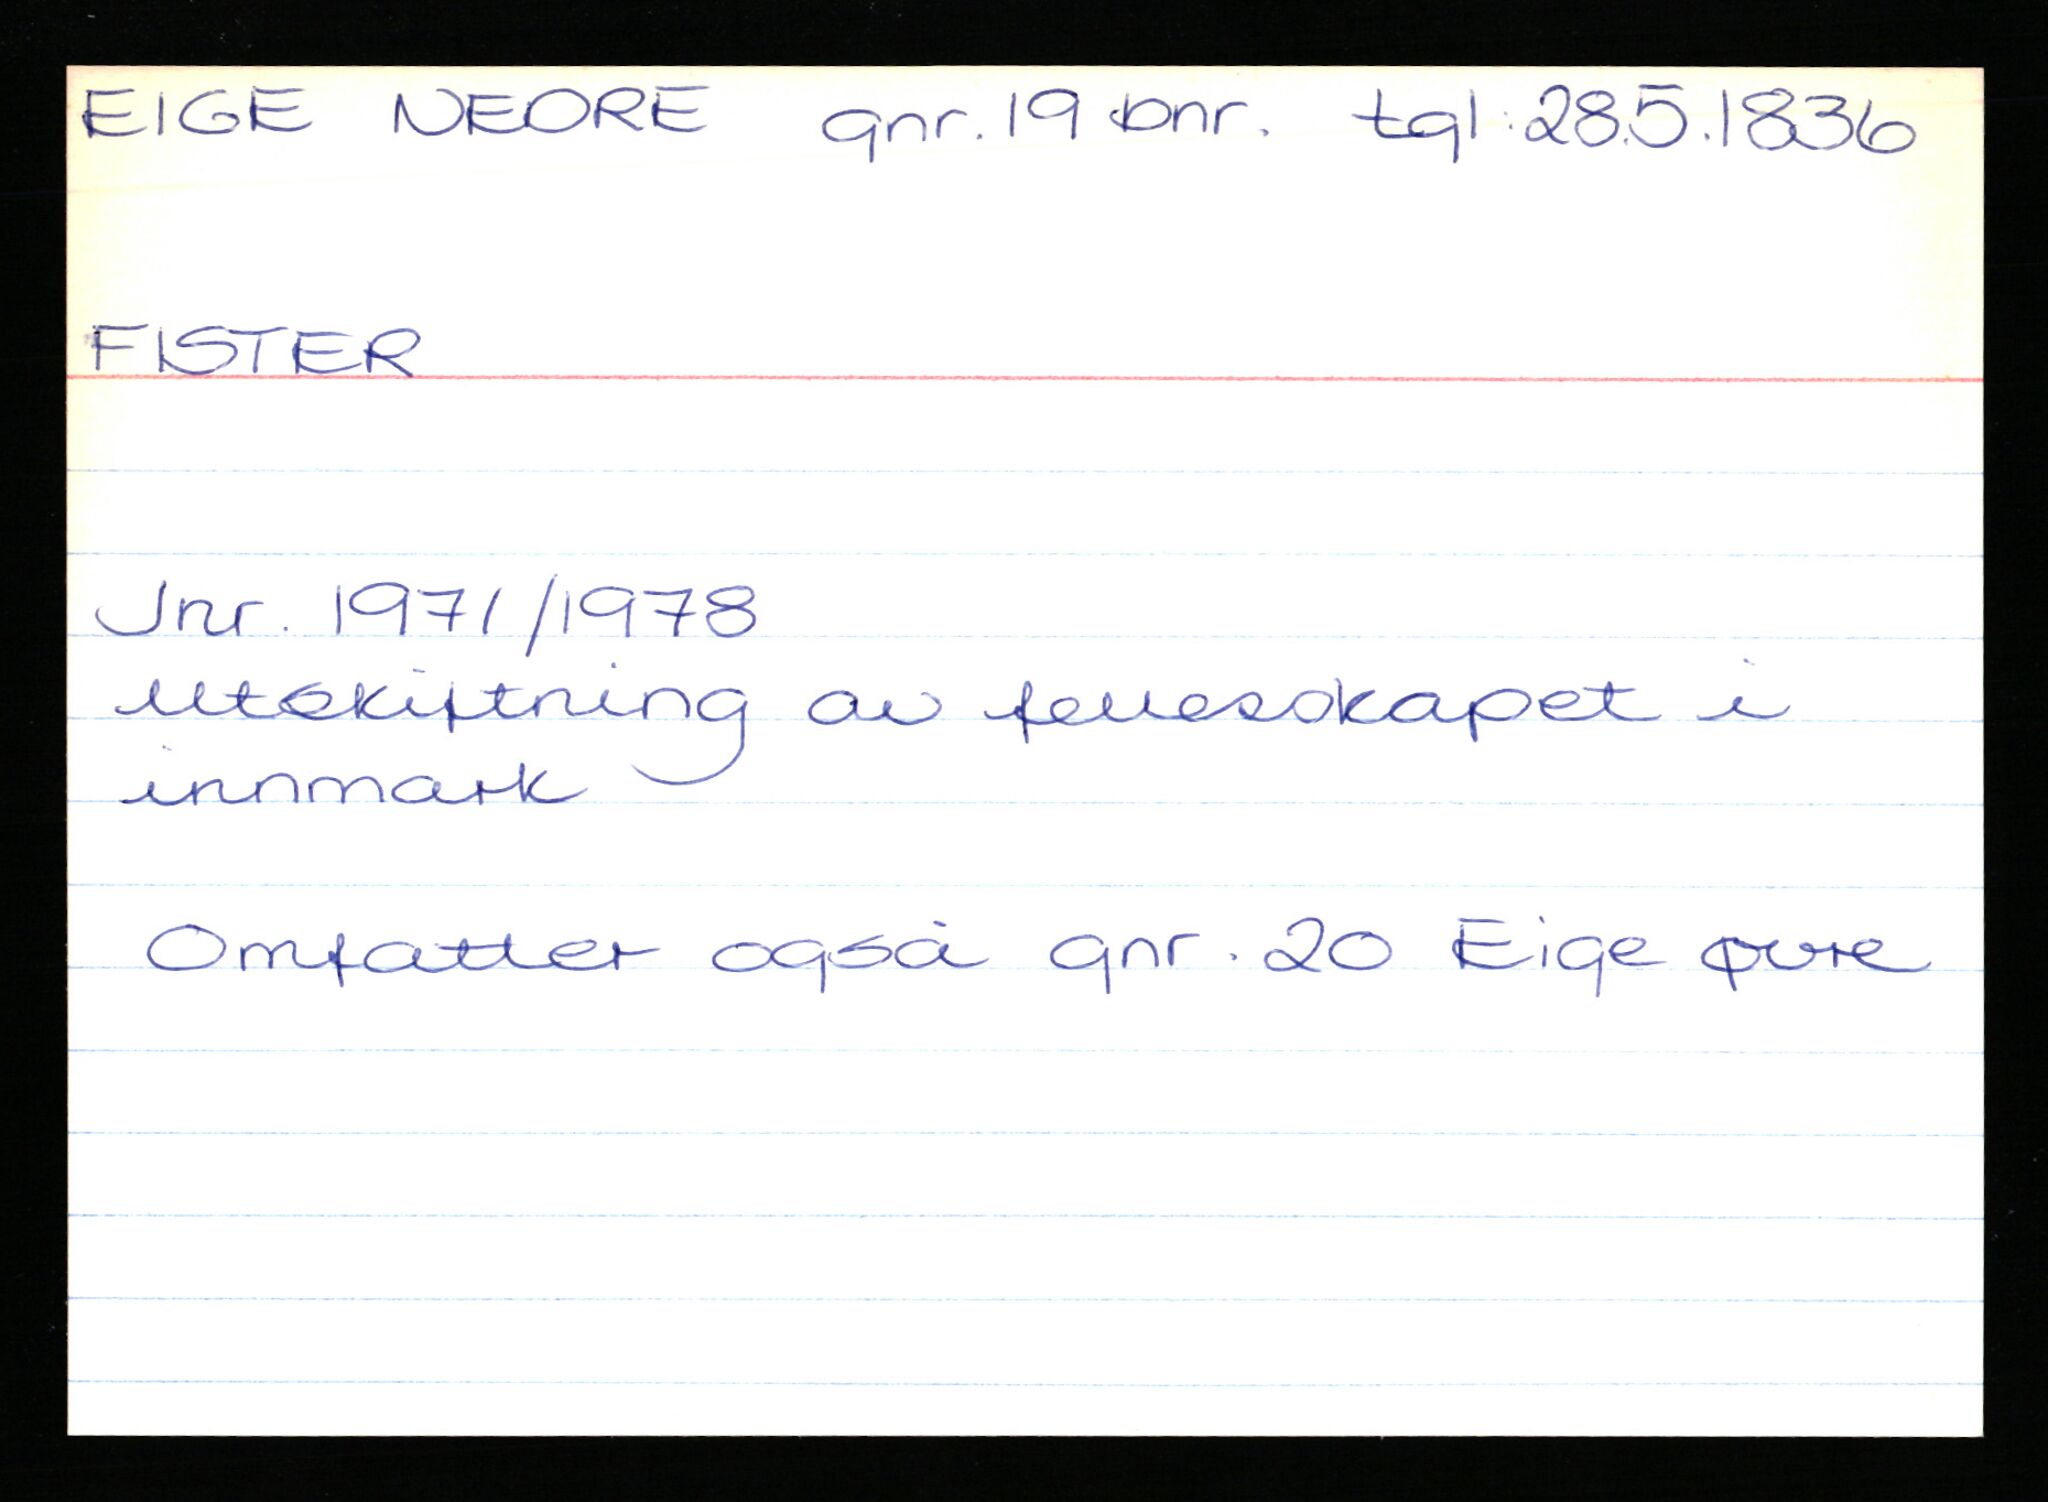 EIGE NEDRE gnr. 19 bnr. tgl: 28.5.1836
FISTER
Jnr. 1971/1978
Utskiftning av fellesskapet i
innmark
Omfatter også gnr. 20 Eige øvre